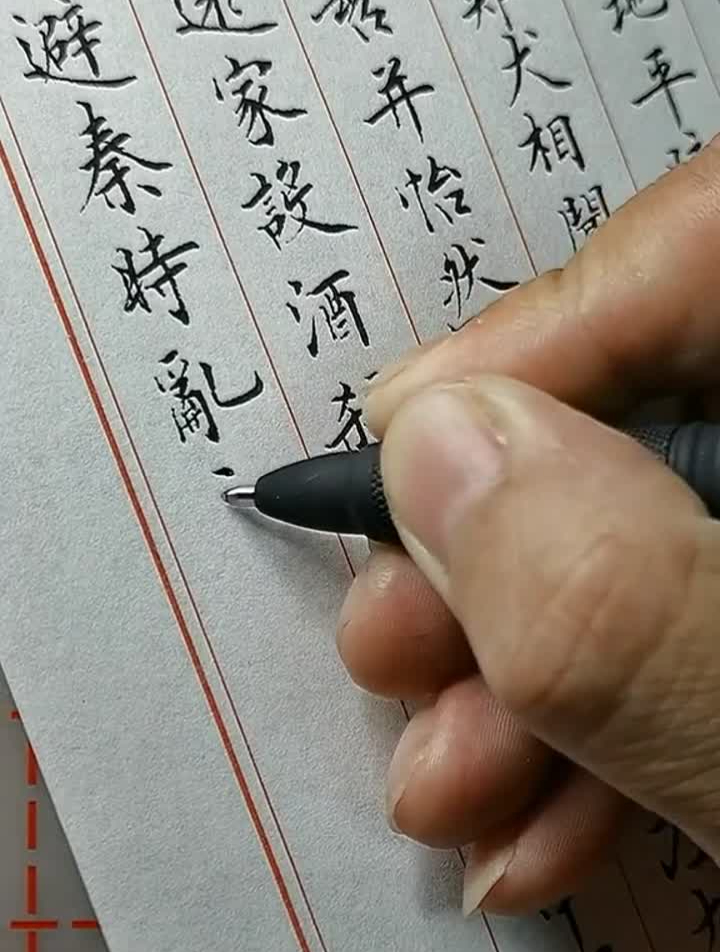 地平
犬相聞
并怡然
家設酒
避秦時亂